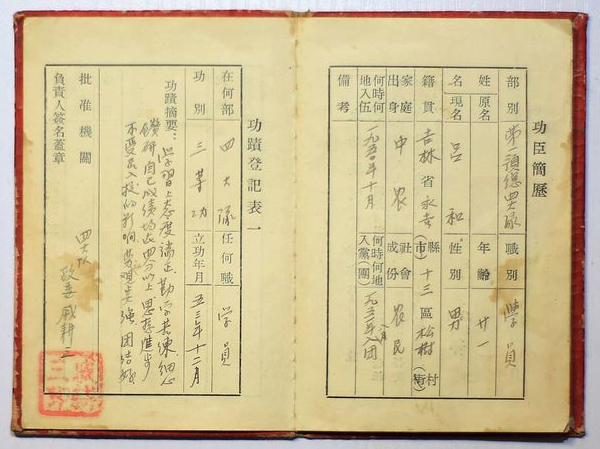 功臣簡歷
部別 第一預總四大隊 職別 學員
姓名 原名 年齡 廿一
現名 呂和 性別 男
籍貫 吉林省永吉縣(市)十三區松樹村(街)
家庭出身 中農 社會成份 農民
何時何地入伍 一九五〇年十月 何時何地入黨(團) 一九五二年八月入团
備考
功蹟登記表一
在何部 四大隊 任何職 学員
功別 三等功 立功年月 五三年十二月
功蹟摘要: 學習上态度端正勤学苦練細心
鑽研自己成績均在四分以上思想進步
不受 入 的影响 强团结
批准機關 四大队
負責人簽名蓋章